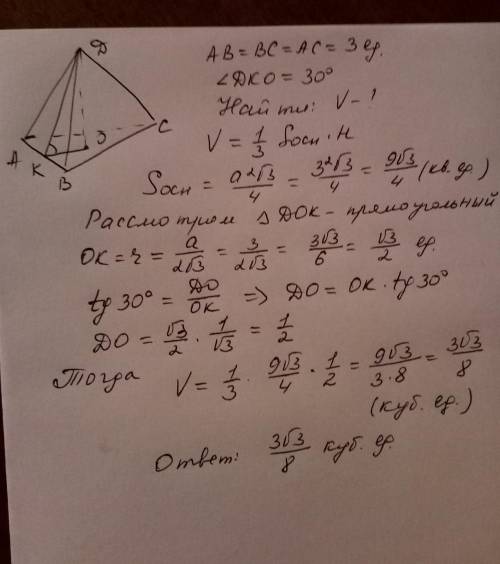 D
A
K
B
C
O
AB = BC = AC = 3 ед.
∠DKO = 30°
Найти: V - ?
V = 1/3 Sосн · H
Sосн = a²√3/4 = 3²√3/4 = 9√3/4 (кв. ед.)
Рассмотрим △ DOK - прямоугольный
OK = r = a/2√3 = 3/2√3 = 3√3/6 = √3/2 ед.
tg 30° = DO/OK ⇒ DO = OK · tg 30°
DO = √3/2 · 1/√3 = 1/2
Тогда V = 1/3 · 9√3/4 · 1/2 = 9√3/3·8 = 3√3/8
(куб. ед.)
Ответ: 3√3/8 куб. ед.